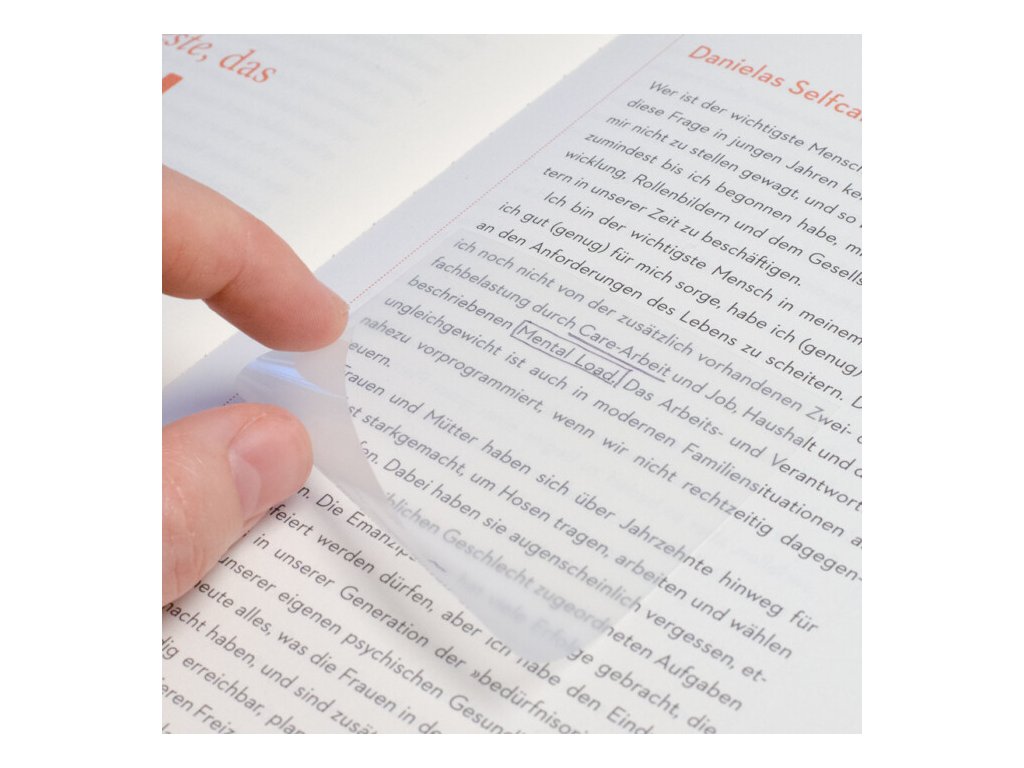 ste, das
Danielas Selfca
Wer ist der wichtigste Mensch
diese Frage in jungen Jahren
mir nicht zu stellen gewagt, und so
zumindest bis ich begonnen habe,
wicklung, Rollenbildern und dem Gesells
tern in unserer Zeit zu beschäftigen.
Ich bin der wichtigste Mensch in meinem
ich gut (genug) für mich sorge, habe ich (genug)
an den Anforderungen des Lebens zu scheitern. D
ich noch nicht von der zusätzlich vorhandenen Zwei-
fachbelastung durch Care-Arbeit und Job, Haushalt und
beschriebenen Mental Load. Das Arbeits- und Verantwort
ungleichgewicht ist auch in modernen Familiensituationen
nahezu vorprogrammiert, wenn wir nicht rechtzeitig dagegen-
euern.
Frauen und Mütter haben sich über Jahrzehnte hinweg für
st starkgemacht, um Hosen tragen, arbeiten und wählen
fen. Dabei haben sie augenscheinlich vergessen, et-
blichen Geschlecht zugeordneten Aufgaben
n. Die Emanzip hat viele Erfolge gebracht, die
efeiert werden dürfen, aber ich habe den Eind
in unserer Generation der »bedürfnisori
unserer eigenen psychischen Gesund
heute alles, was die Frauen in de
macht haben, und sind zusät
dig erreichbar, plan
aren Freiz